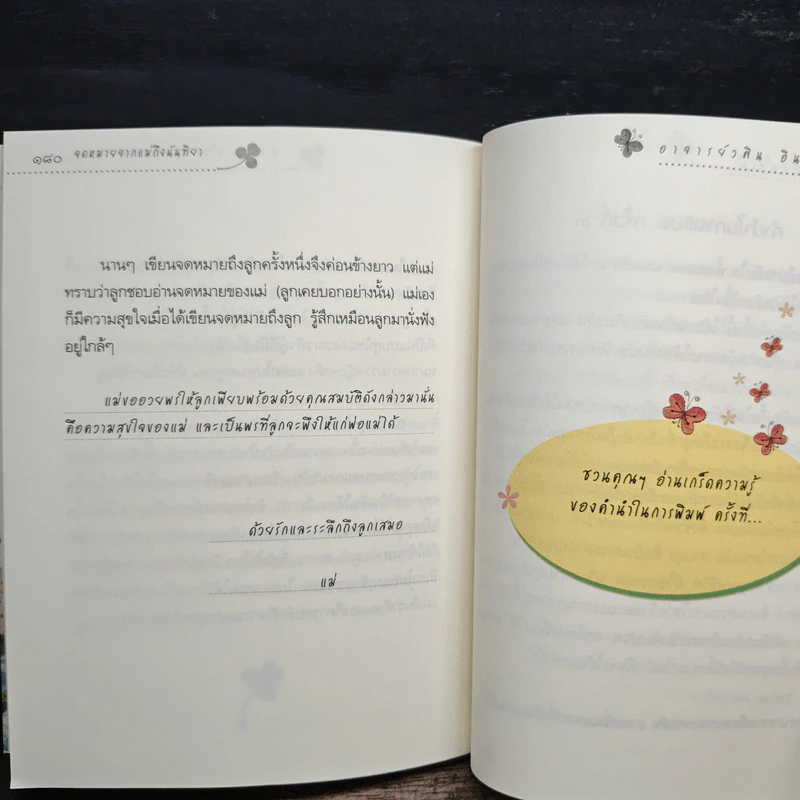 ๑๘๐ จดหมายจากแม่ถึงนันทิยา
นานๆ เขียนจดหมายถึงลูกครั้งหนึ่งจึงค่อนข้างยาว แต่แม่
ทราบว่าลูกชอบอ่านจดหมายของแม่ (ลูกเคยบอกอย่างนั้น) แม่เอง
ก็มีความสุขใจเมื่อได้เขียนจดหมายถึงลูก รู้สึกเหมือนลูกมานั่งฟัง
อยู่ใกล้ๆ
แม่ขออวยพรให้ลูกเพียบพร้อมด้วยคุณสมบัติดังกล่าวมานั้น
คือความสุขใจของแม่ และเป็นพรที่ลูกจะพึงให้แก่พ่อแม่ได้
ด้วยรักและระลึกถึงลูกเสมอ
แม่
อาจารย์วศิน อิน
ชวนคุณๆ อ่านเกร็ดความรู้
ของคำนำในการพิมพ์ ครั้งที่...